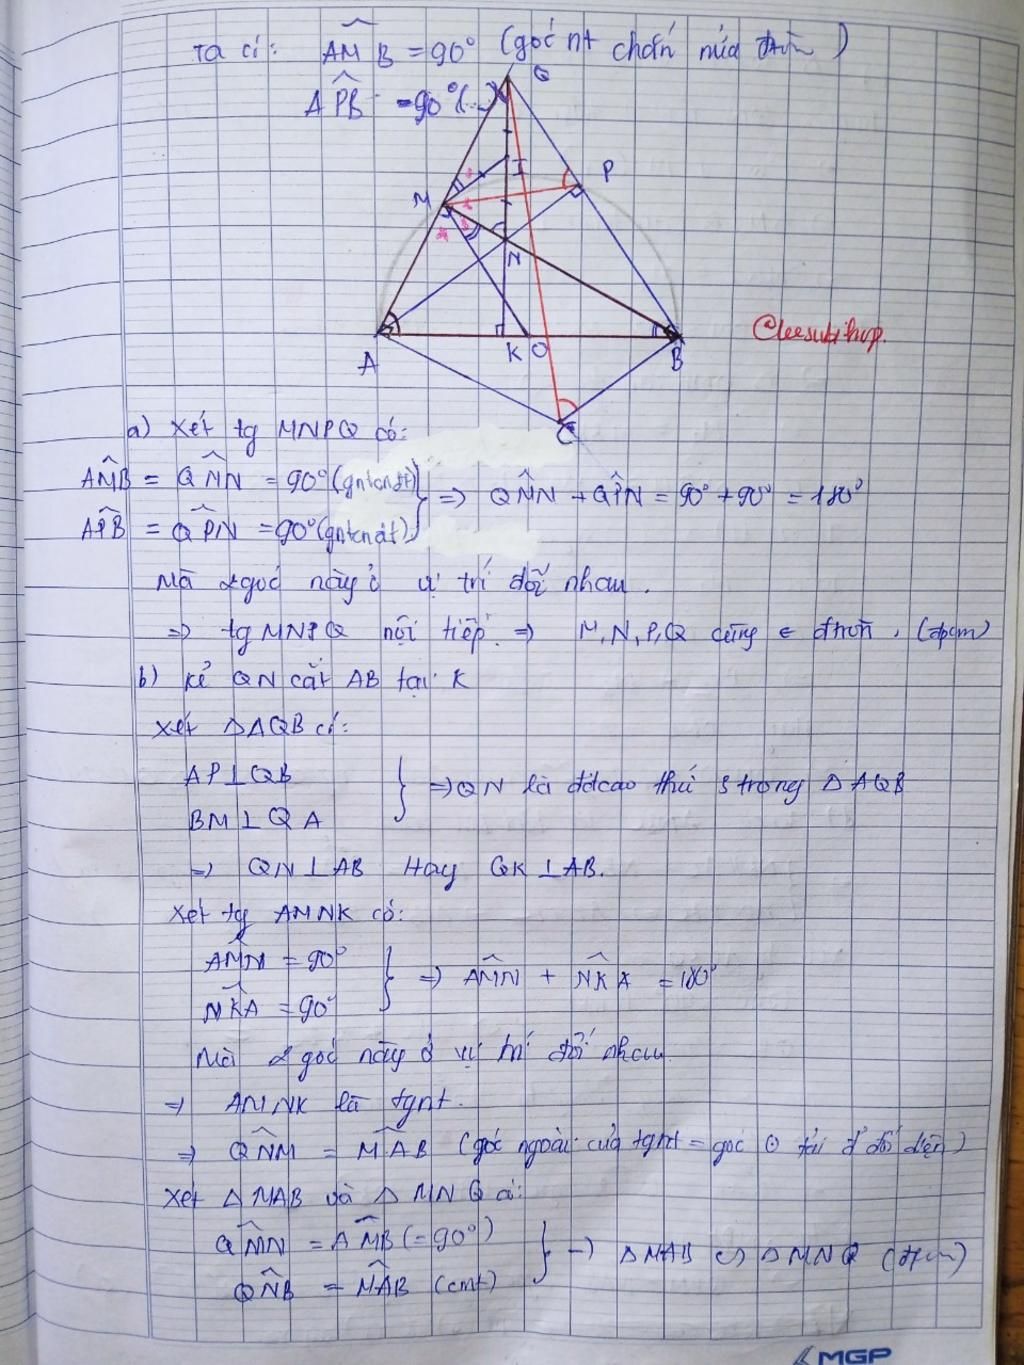 Ta có: AMB = 90° (góc nt chắn nửa đtròn)
APB = 90° (...)
Q
I
P
M
N
A
K O
B
C
@leesutihop.
a) Xét tg MNPQ có:
AMB = QMN = 90° (gntcnđt)
APB = QPN = 90° (gntcnđt) } => QMN + QPN = 90° + 90° = 180°
Mà 2 góc này ở vị trí đối nhau.
=> tg MNPQ nội tiếp => M, N, P, Q cùng ∈ đtròn. (đpcm)
b) Kẻ QN cắt AB tại K
Xét ΔAQB có:
AP⊥QB
BM⊥QA } => QN là đ'cao thứ 3 trong ΔAQB
=> QN⊥AB Hay QK⊥AB.
Xét tg AMNK có:
AMN = 90°
NKA = 90° } => AMN + NKA = 180°
Mà 2 góc này ở vị trí đối nhau
=> AMNK là tgnt.
=> QNM = MAB (góc ngoài của tgnt = góc tại đ' đối diện)
Xét ΔMAB và ΔMNQ có:
QMN = AMB (=90°)
QNB = MAB (cmt) } => ΔMAB ∽ ΔMNQ (đpcm)
MGP